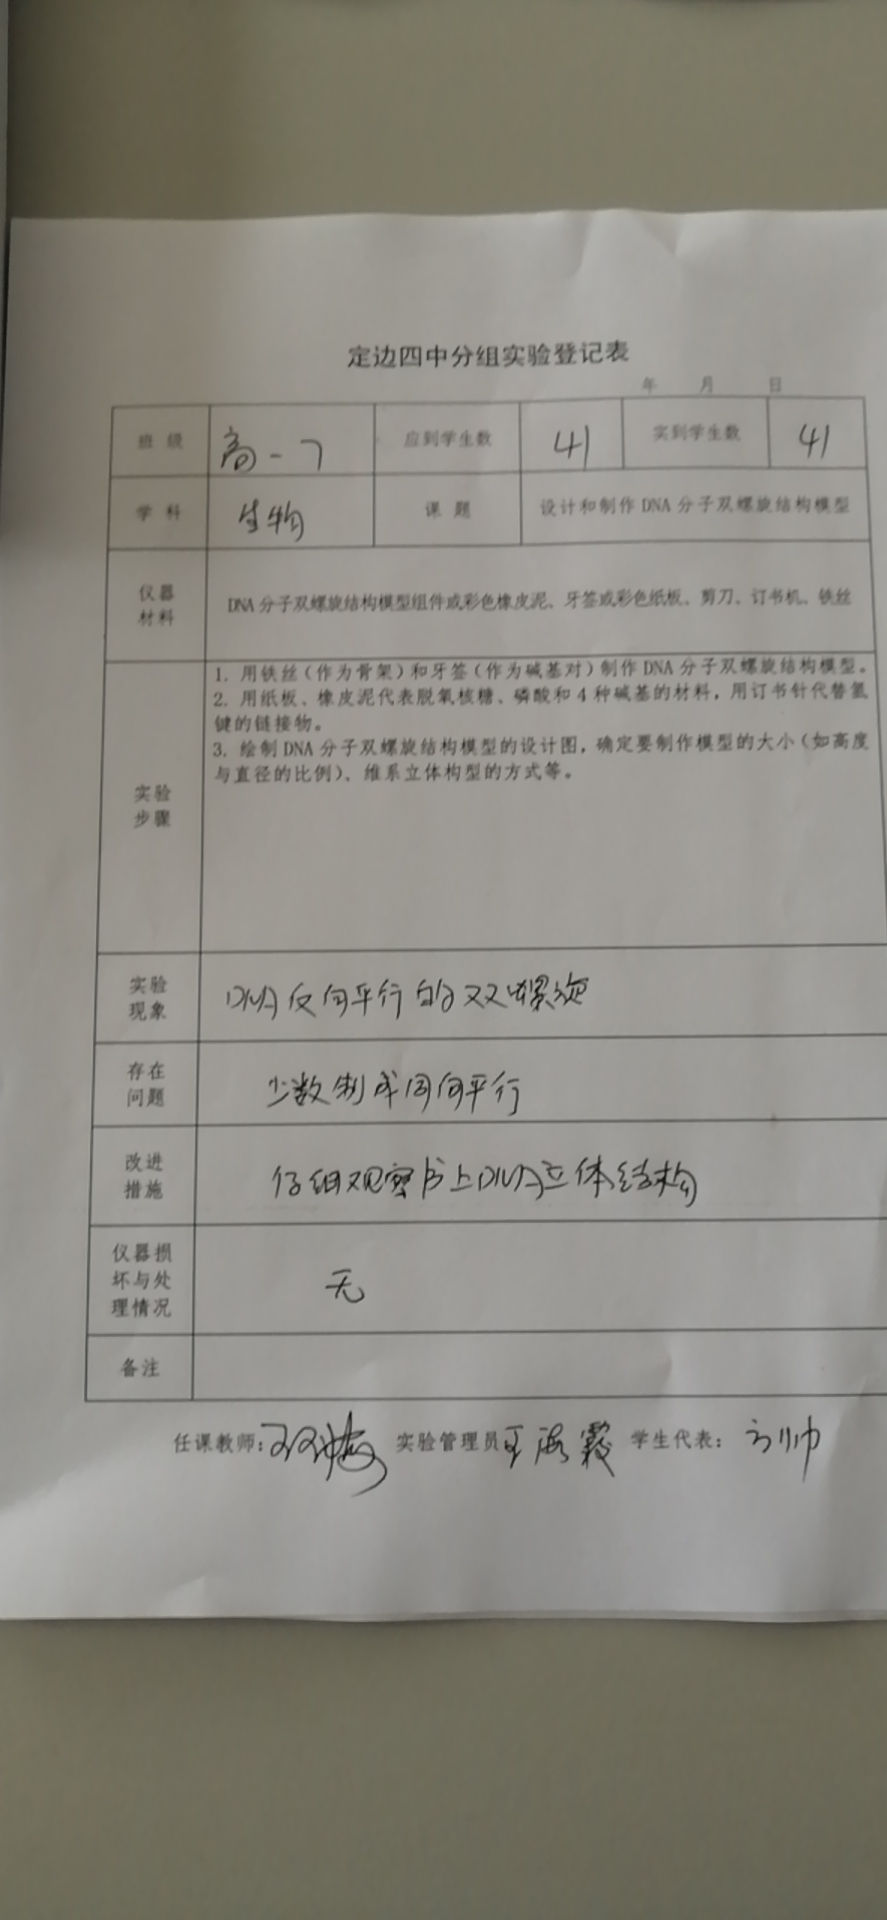 定边四中分组实验登记表
年 月 日
班 级 高一7 应到学生数 41 实到学生数 41
学 科 生物 课 题 设计和制作DNA分子双螺旋结构模型
仪器
材料
DNA分子双螺旋结构模型组件或彩色橡皮泥、牙签或彩色纸板、剪刀、订书机、铁丝
实验
步骤
1. 用铁丝(作为骨架)和牙签(作为碱基对)制作DNA分子双螺旋结构模型。
2. 用纸板、橡皮泥代表脱氧核糖、磷酸和4种碱基的材料,用订书针代替氢
键的链接物。
3. 绘制DNA分子双螺旋结构模型的设计图,确定要制作模型的大小(如高度
与直径的比例)、维系立体构型的方式等。
实验
现象
DNA反向平行的双螺旋
存在
问题
少数制成同向平行
改进
措施
仔细观察书上DNA立体结构
仪器损
坏与处
理情况
无
备注
任课教师: 实验管理员 王海霞 学生代表: 刘帅